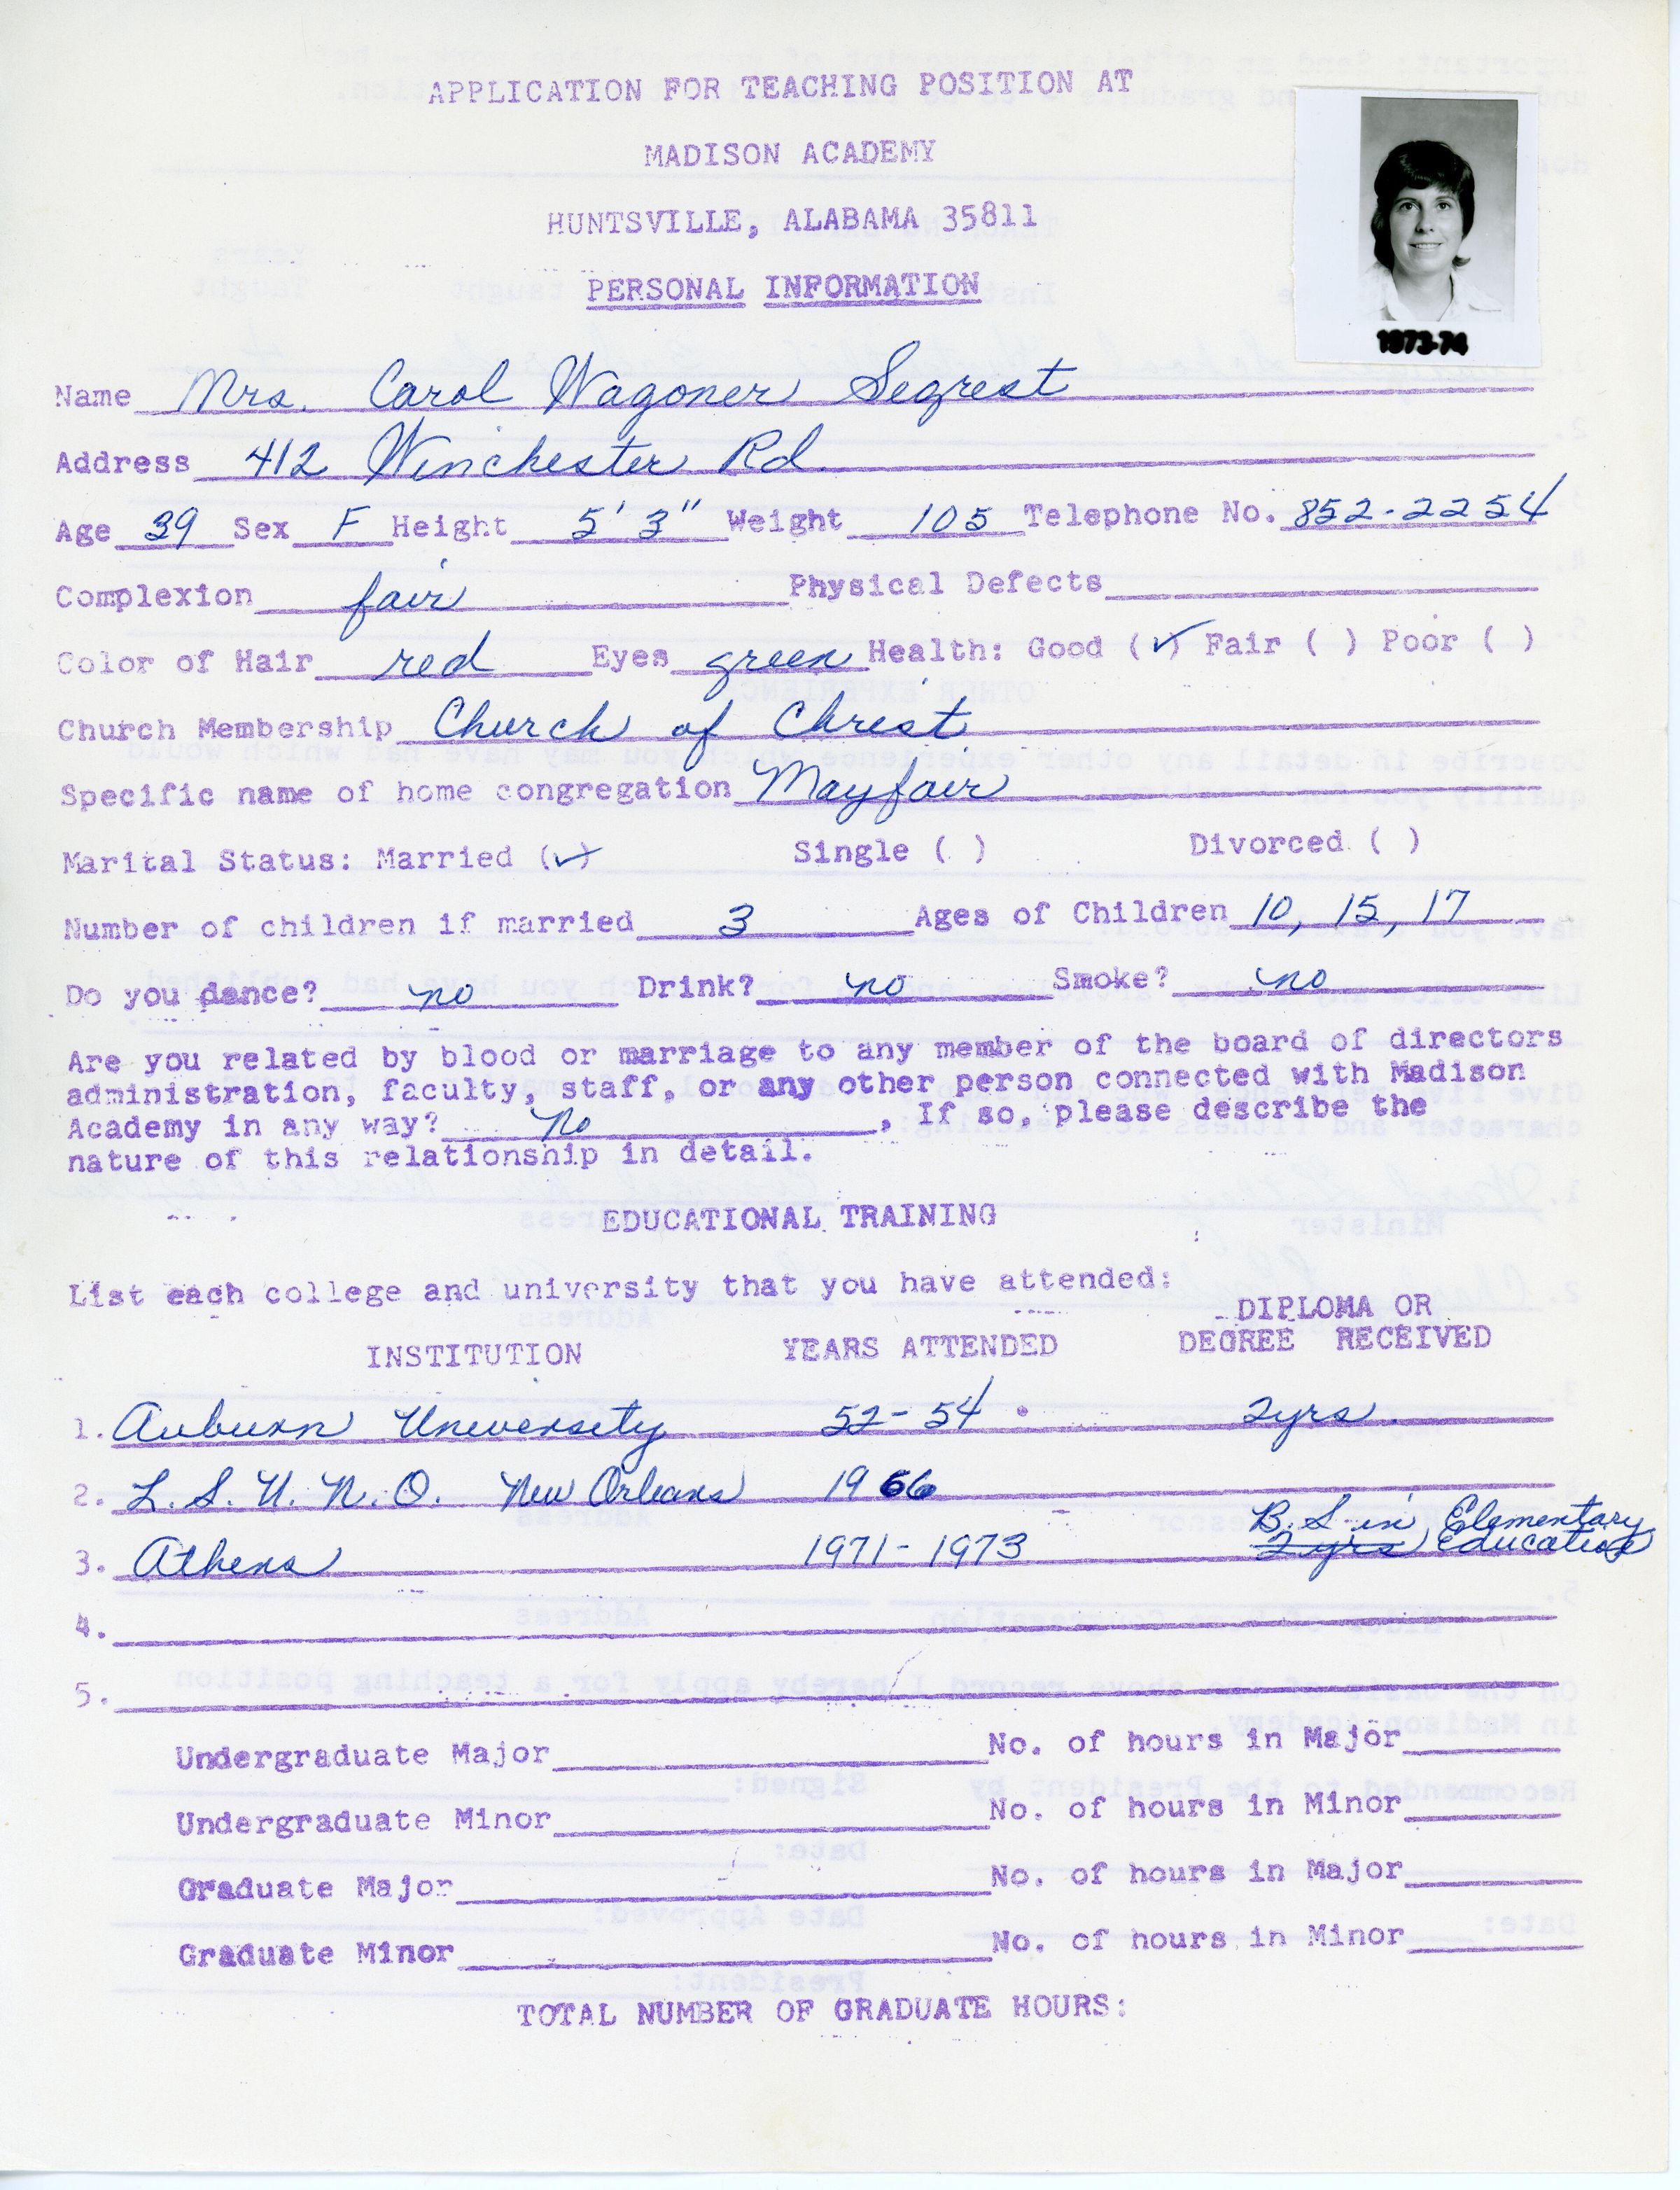 APPLICATION FOR TEACHING POSITION AT
MADISON ACADEMY
HUNTSVILLE, ALABAMA 35811
PERSONAL INFORMATION
1973-74
Name Mrs. Carol Wagoner Segrest
Address 412 Winchester Rd.
Age 39 Sex F Height 5' 3" Weight 105 Telephone No. 852-2254
Complexion fair Physical Defects
Color of Hair red Eyes green Health: Good (✓) Fair ( ) Poor ( )
Church Membership Church of Christ
Specific name of home congregation Mayfair
Marital Status: Married (✓) Single ( ) Divorced ( )
Number of children if married 3 Ages of Children 10, 15, 17
Do you dance? no Drink? no Smoke? no
Are you related by blood or marriage to any member of the board of directors
administration, faculty, staff, or any other person connected with Madison
Academy in any way? No. If so, please describe the
nature of this relationship in detail.
EDUCATIONAL TRAINING
List each college and university that you have attended:
DIPLOMA OR
INSTITUTION YEARS ATTENDED DEGREE RECEIVED
1. Auburn University 52-54 2yrs.
2. L.S.U.N.O. New Orleans 1966
3. Athens 1971-1973 B.S. in Elementary
2 yrs Education
4.
5.
Undergraduate Major No. of hours in Major
Undergraduate Minor No. of hours in Minor
Graduate Major No. of hours in Major
Graduate Minor No. of hours in Minor
TOTAL NUMBER OF GRADUATE HOURS: